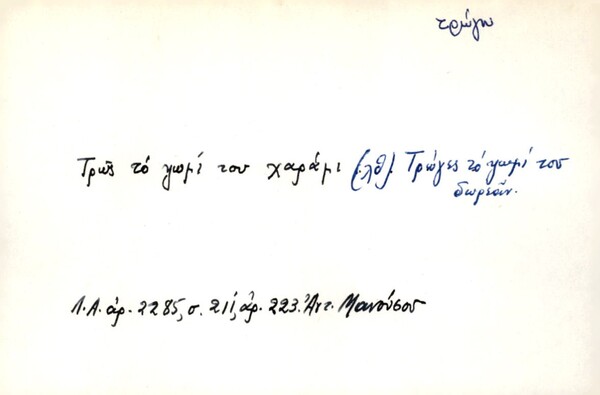 τρώγω
Τρώς τό ψωμί του χαράμι (λθ). Τρώγες τό ψωμί του
δωρεάν.
Λ.Α. άρ. 2285, σ. 211, άρ. 223. Άντ. Μανούσου